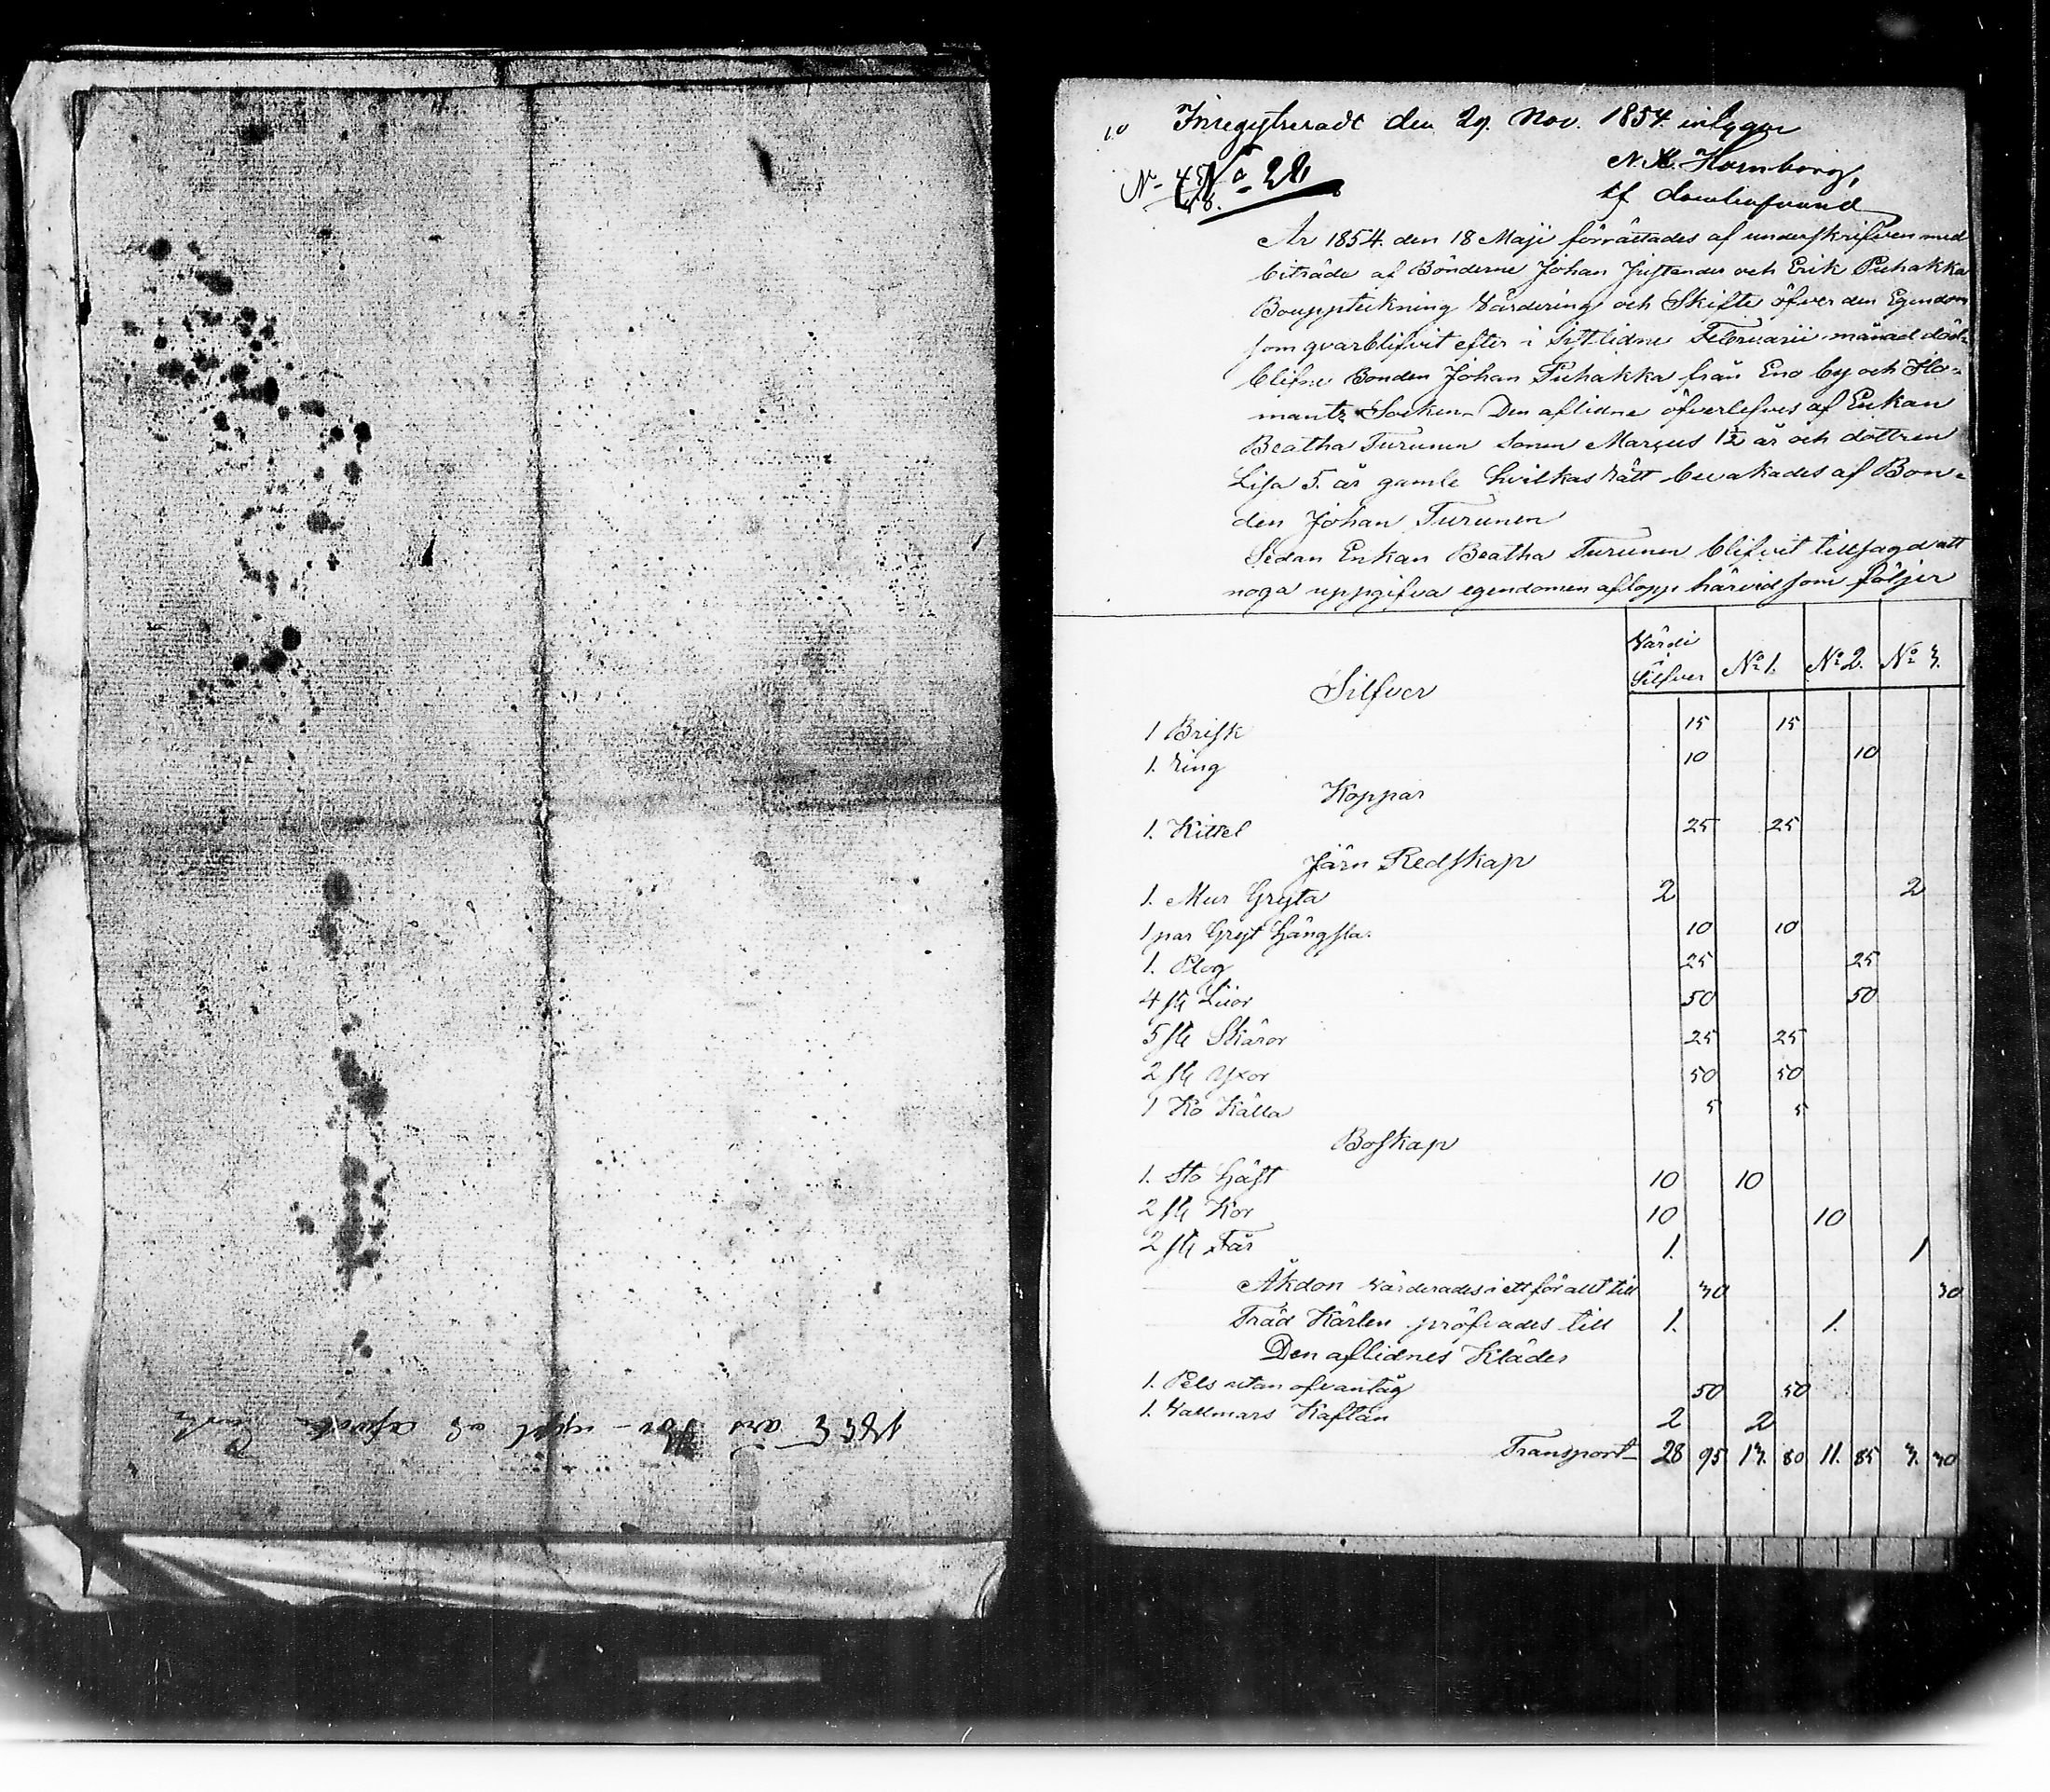 Inregistreradt den 29. Nov. 1854 intygar
N. K. Hornborg,
tf Domhafvand
Nº 22
År 1854 den 18 Maji förrättades af underskrifven med
biträde af Bönderne Johan Justander och Erik Puhakka
Bouppteckning Värdering och Skifte öfver den Egendom
som qvarblifvit efter i sistlidne Februarii månad död-
blifne Bonden Johan Puhakka från Eno by och Ilo-
mants Socken. Den aflidne öfverlefves af Enkan
Beatha Turunen Sonen Marcus 1½ år och dottren
Lisa 5. år gamle hvilkas rätt bevakades af Bon-
den Johan Turunen
Sedan Enkan Beatha Turunen blifvit tillsagd att
noga uppgifva egendomen aflopp härvid som följer
Värde Silfver Nº 1. Nº 2. Nº 3.
Silfver
1 Brisk 15 15
1. Ring 10 10
Koppar
1. Kittel 25 25
Järn Redskap
1. Mur Gryta 2 2
1 par Gryt Hängsla. 10 10
1. Plog 25 25
4 st Liior 50 50
5 st Skäror 25 25
2 st Yxor 50 50
1 Ko Källa 5 5
Boskap
1. Sto Häst 10 10
2 st Kor 10 10
2 st Får 1. 1
Åkdon värderades i ett för allt till 30 30
Träd Kärlen pröfvades till 1. 1.
Den aflidnes Kläder
1. Pels utan ofvantåg 50 50
1. Vallmars Kaftan 2 2
Transport 28 95 13. 80 11. 85 3. 30